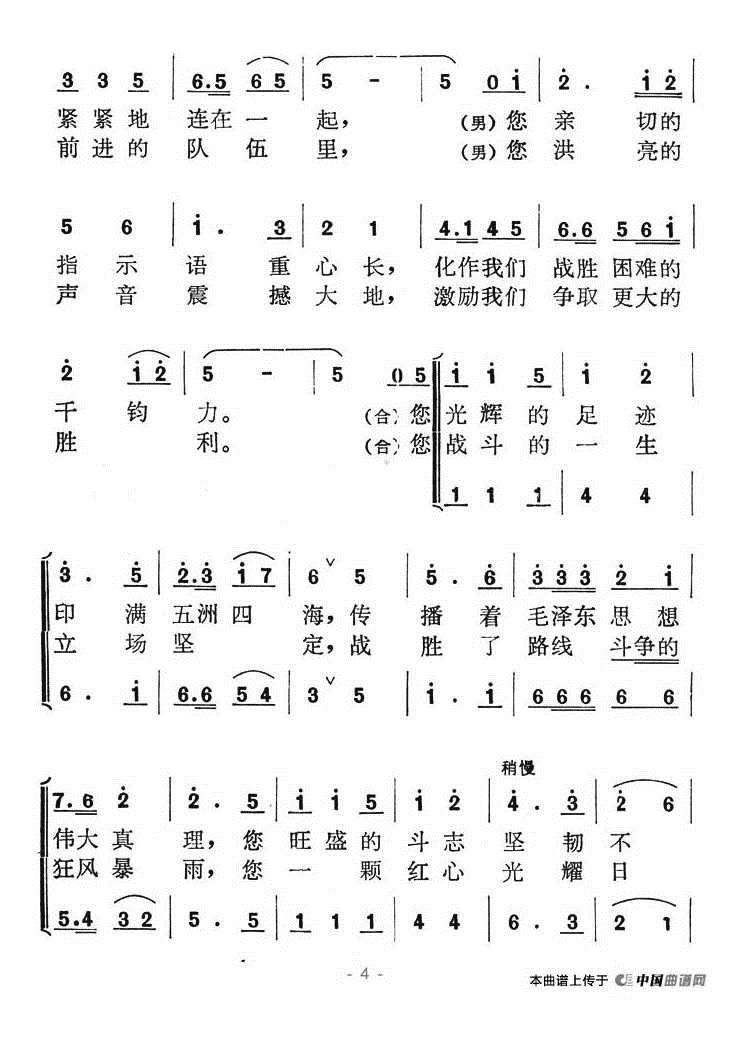 3 3 5 | 6.5 6 5 | 5 - | 5 0 1 | 2 . 1 2
紧紧地 连在一 起, (男)您 亲 切的
前进的 队 伍 里, (男)您 洪 亮的
5 6 | 1 . 3 | 2 1 | 4.1 4 5 | 6.6 5 6 1
指 示 语 重 心 长, 化作我们 战胜 困难的
声 音 震 撼 大 地, 激励我们 争取 更大的
2 1 2 | 5 - | 5 0 5 | 1 1 5 | 1 2
千 钧 力。 (合)您 光 辉 的 足 迹
胜 利。 (合)您 战 斗 的 一 生
1 1 1 | 4 4
3 . 5 | 2.3 1 7 | 6 ∨ 5 | 5 . 6 | 3 3 3 2 1
印 满 五洲 四 海, 传 播 着 毛泽东 思 想
立 场 坚 定, 战 胜 了 路线 斗争的
6 . 1 | 6.6 5 4 | 3 ∨ 5 | 1 . 1 | 6 6 6 6 6
稍慢
7.6 2 | 2 . 5 | 1 1 5 | 1 2 | 4 . 3 | 2 6
伟大 真 理, 您 旺 盛 的 斗 志 坚 韧 不
狂风 暴 雨, 您 一 颗 红 心 光 耀 日
5.4 3 2 | 5 . 5 | 1 1 1 | 4 4 | 6 . 3 | 2 1
- 4 -
本曲谱上传于 中国曲谱网